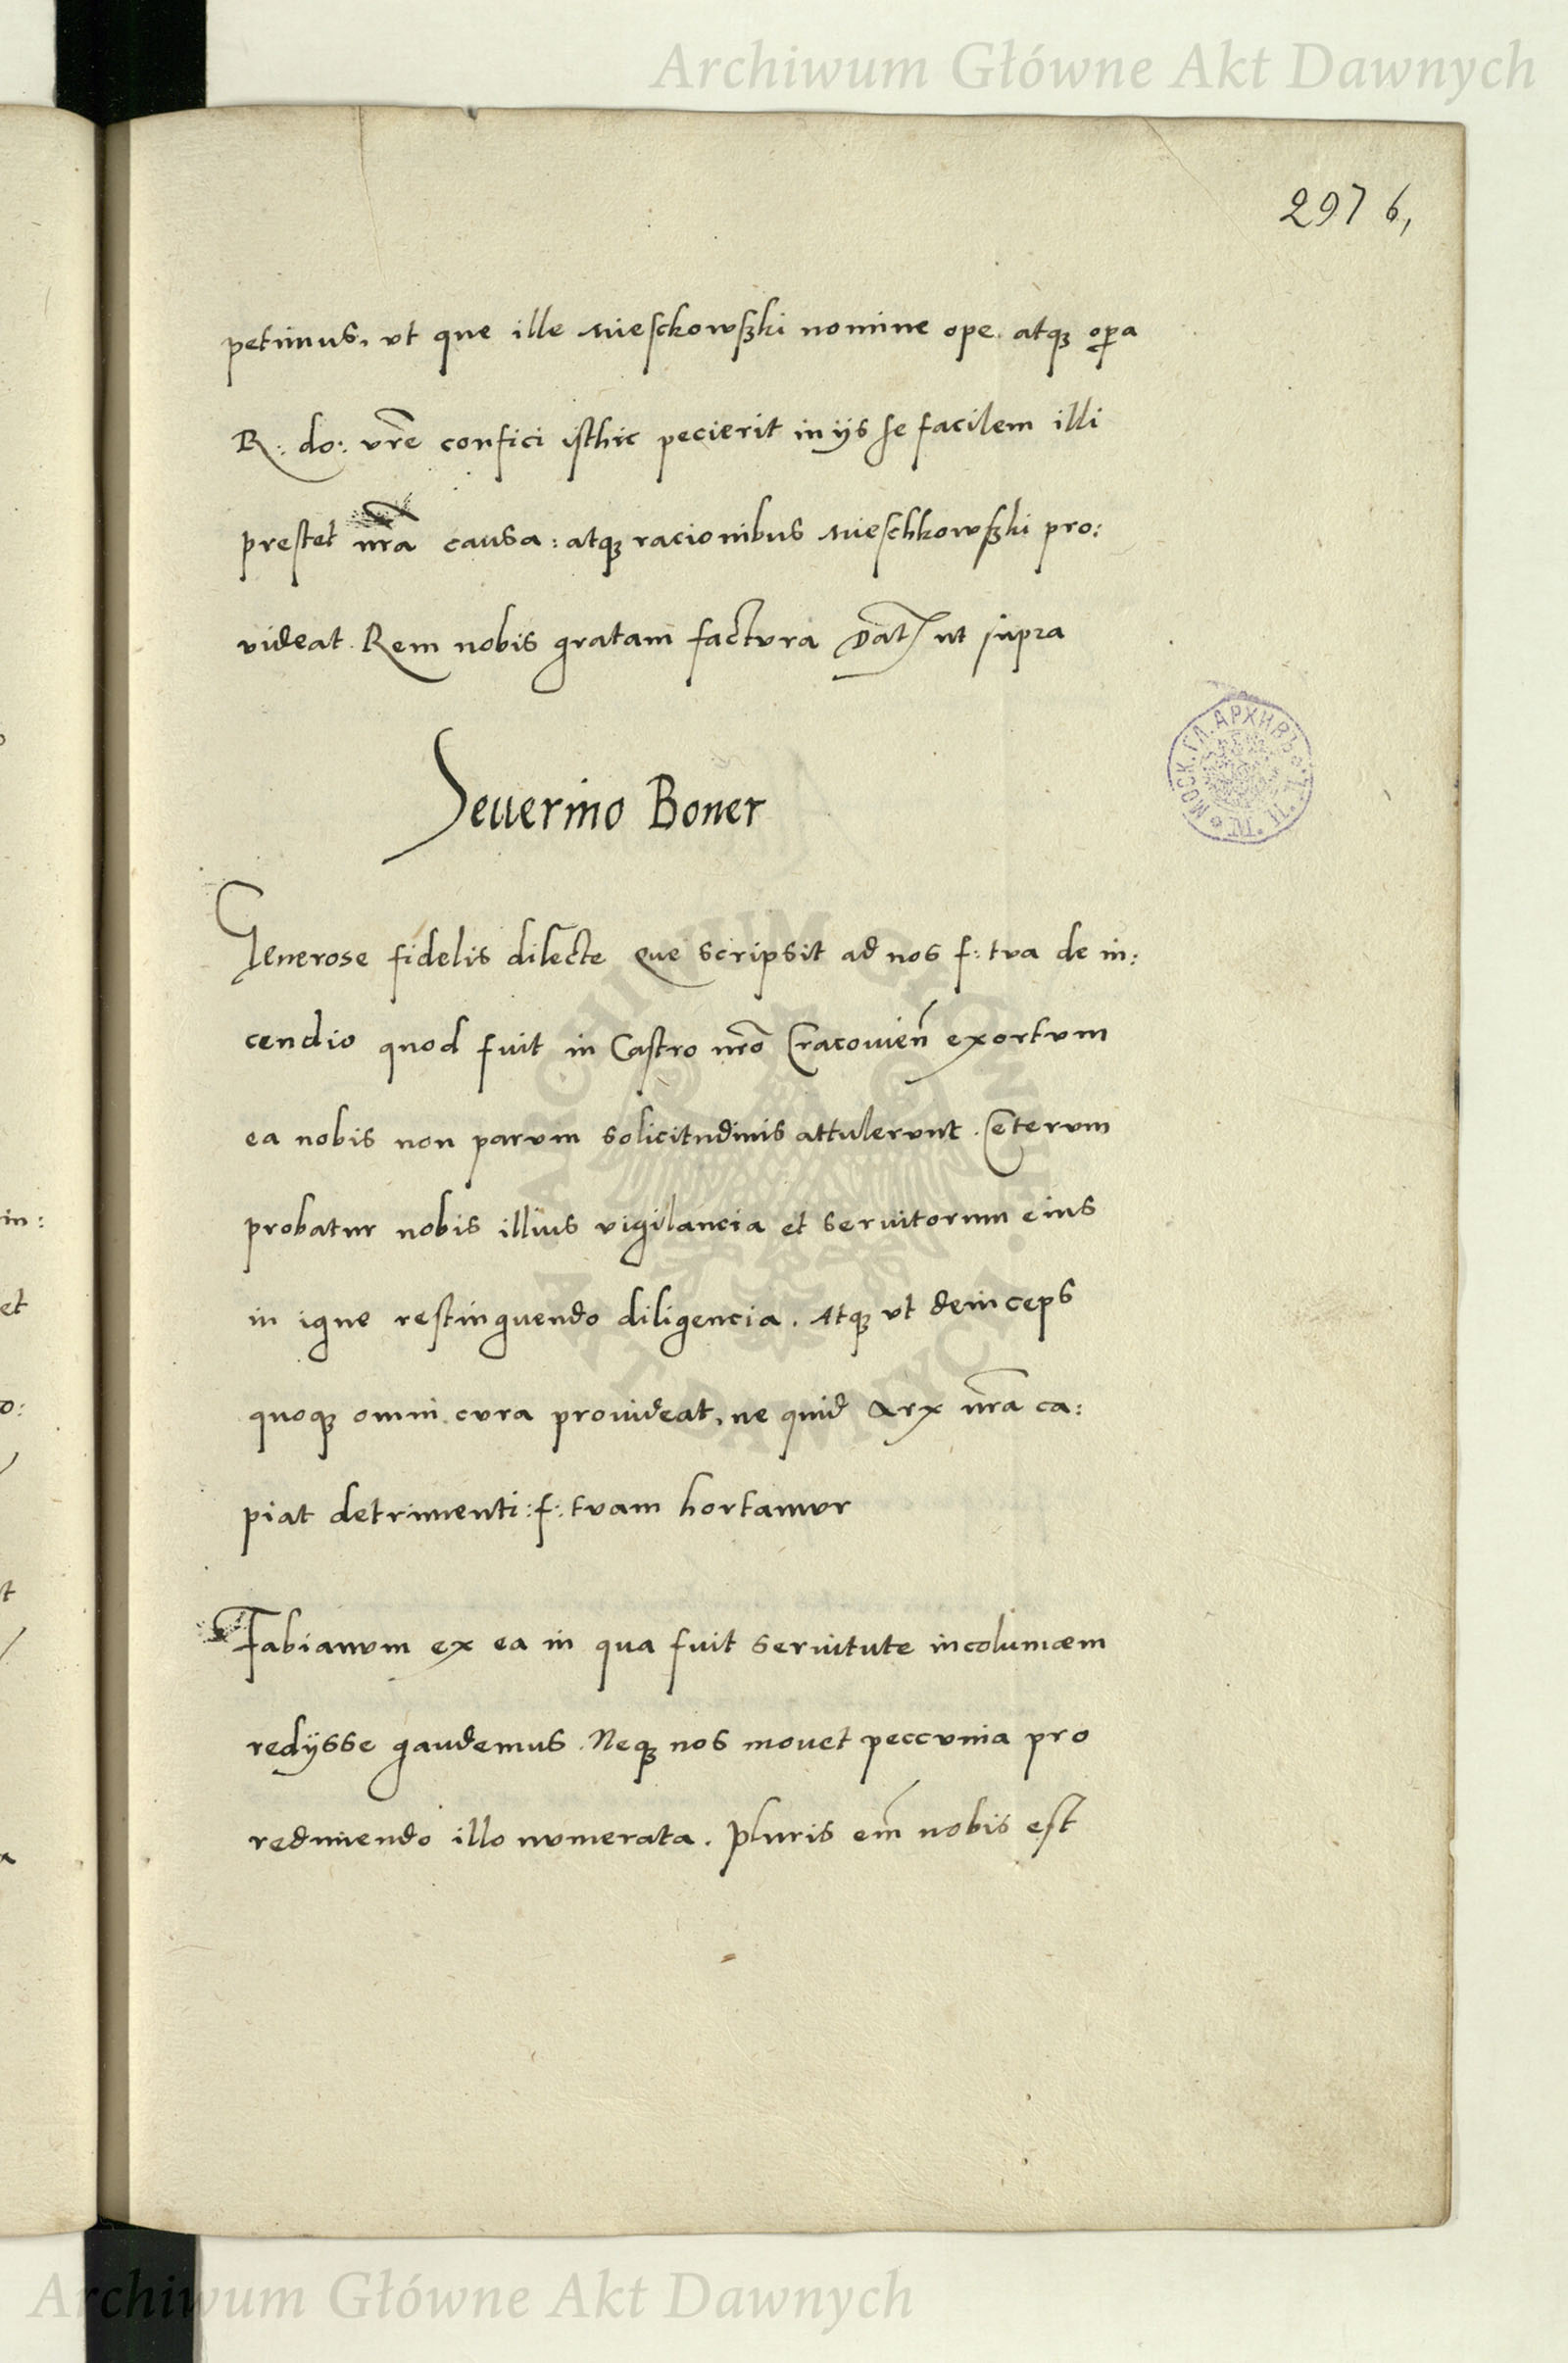 Archiwum Główne Akt Dawnych
297 6,
petimus, vt que ille Mieschkowßki nomine ope atqȝ opa
R: do: vrē confici isthic pecierit in ijs se facilem illi
prestet nrā causa: atqȝ racionibus Mieschkowßki pro:
videat. Rem nobis gratam factura Dat ut supra
Seuerino Boner
Generose fidelis dilecte Que scripsit ad nos f: tua de in:
cendio quod fuit in Castro nrō Cracouien̄ exortum
ea nobis non parvm solicitudinis attulervnt. Ceterum
probatur nobis illius vigilancia et seruitorum eius
in igne restinguendo diligencia. Atqȝ vt deinceps
quoqȝ omni cvra prouideat, ne quid Arx nrā ca:
piat detrimenti: f: tvam hortamvr
Fabianvm ex ea in qua fuit seruitute incolumem
redijsse gaudemus. Neqȝ nos mouet peccvnia pro
redimendo illo nvmerata. Pluris em̄ nobis est
МОСК. ГЛ. АРХИВЪ
ARCHIWUM GŁÓWNE
AKT DAWNYCH
in:
et
o:
t
Archiwum Główne Akt Dawnych